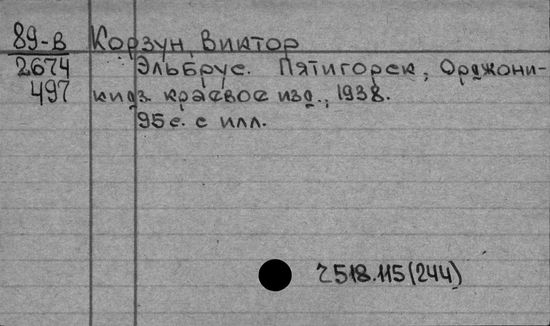 89-В Корзун, Виктор
2674 Эльбрус. Пятигорск, Орджони-
497 кидз. краевое изд., 1938.
95 с. с илл.
Z518.115(244)